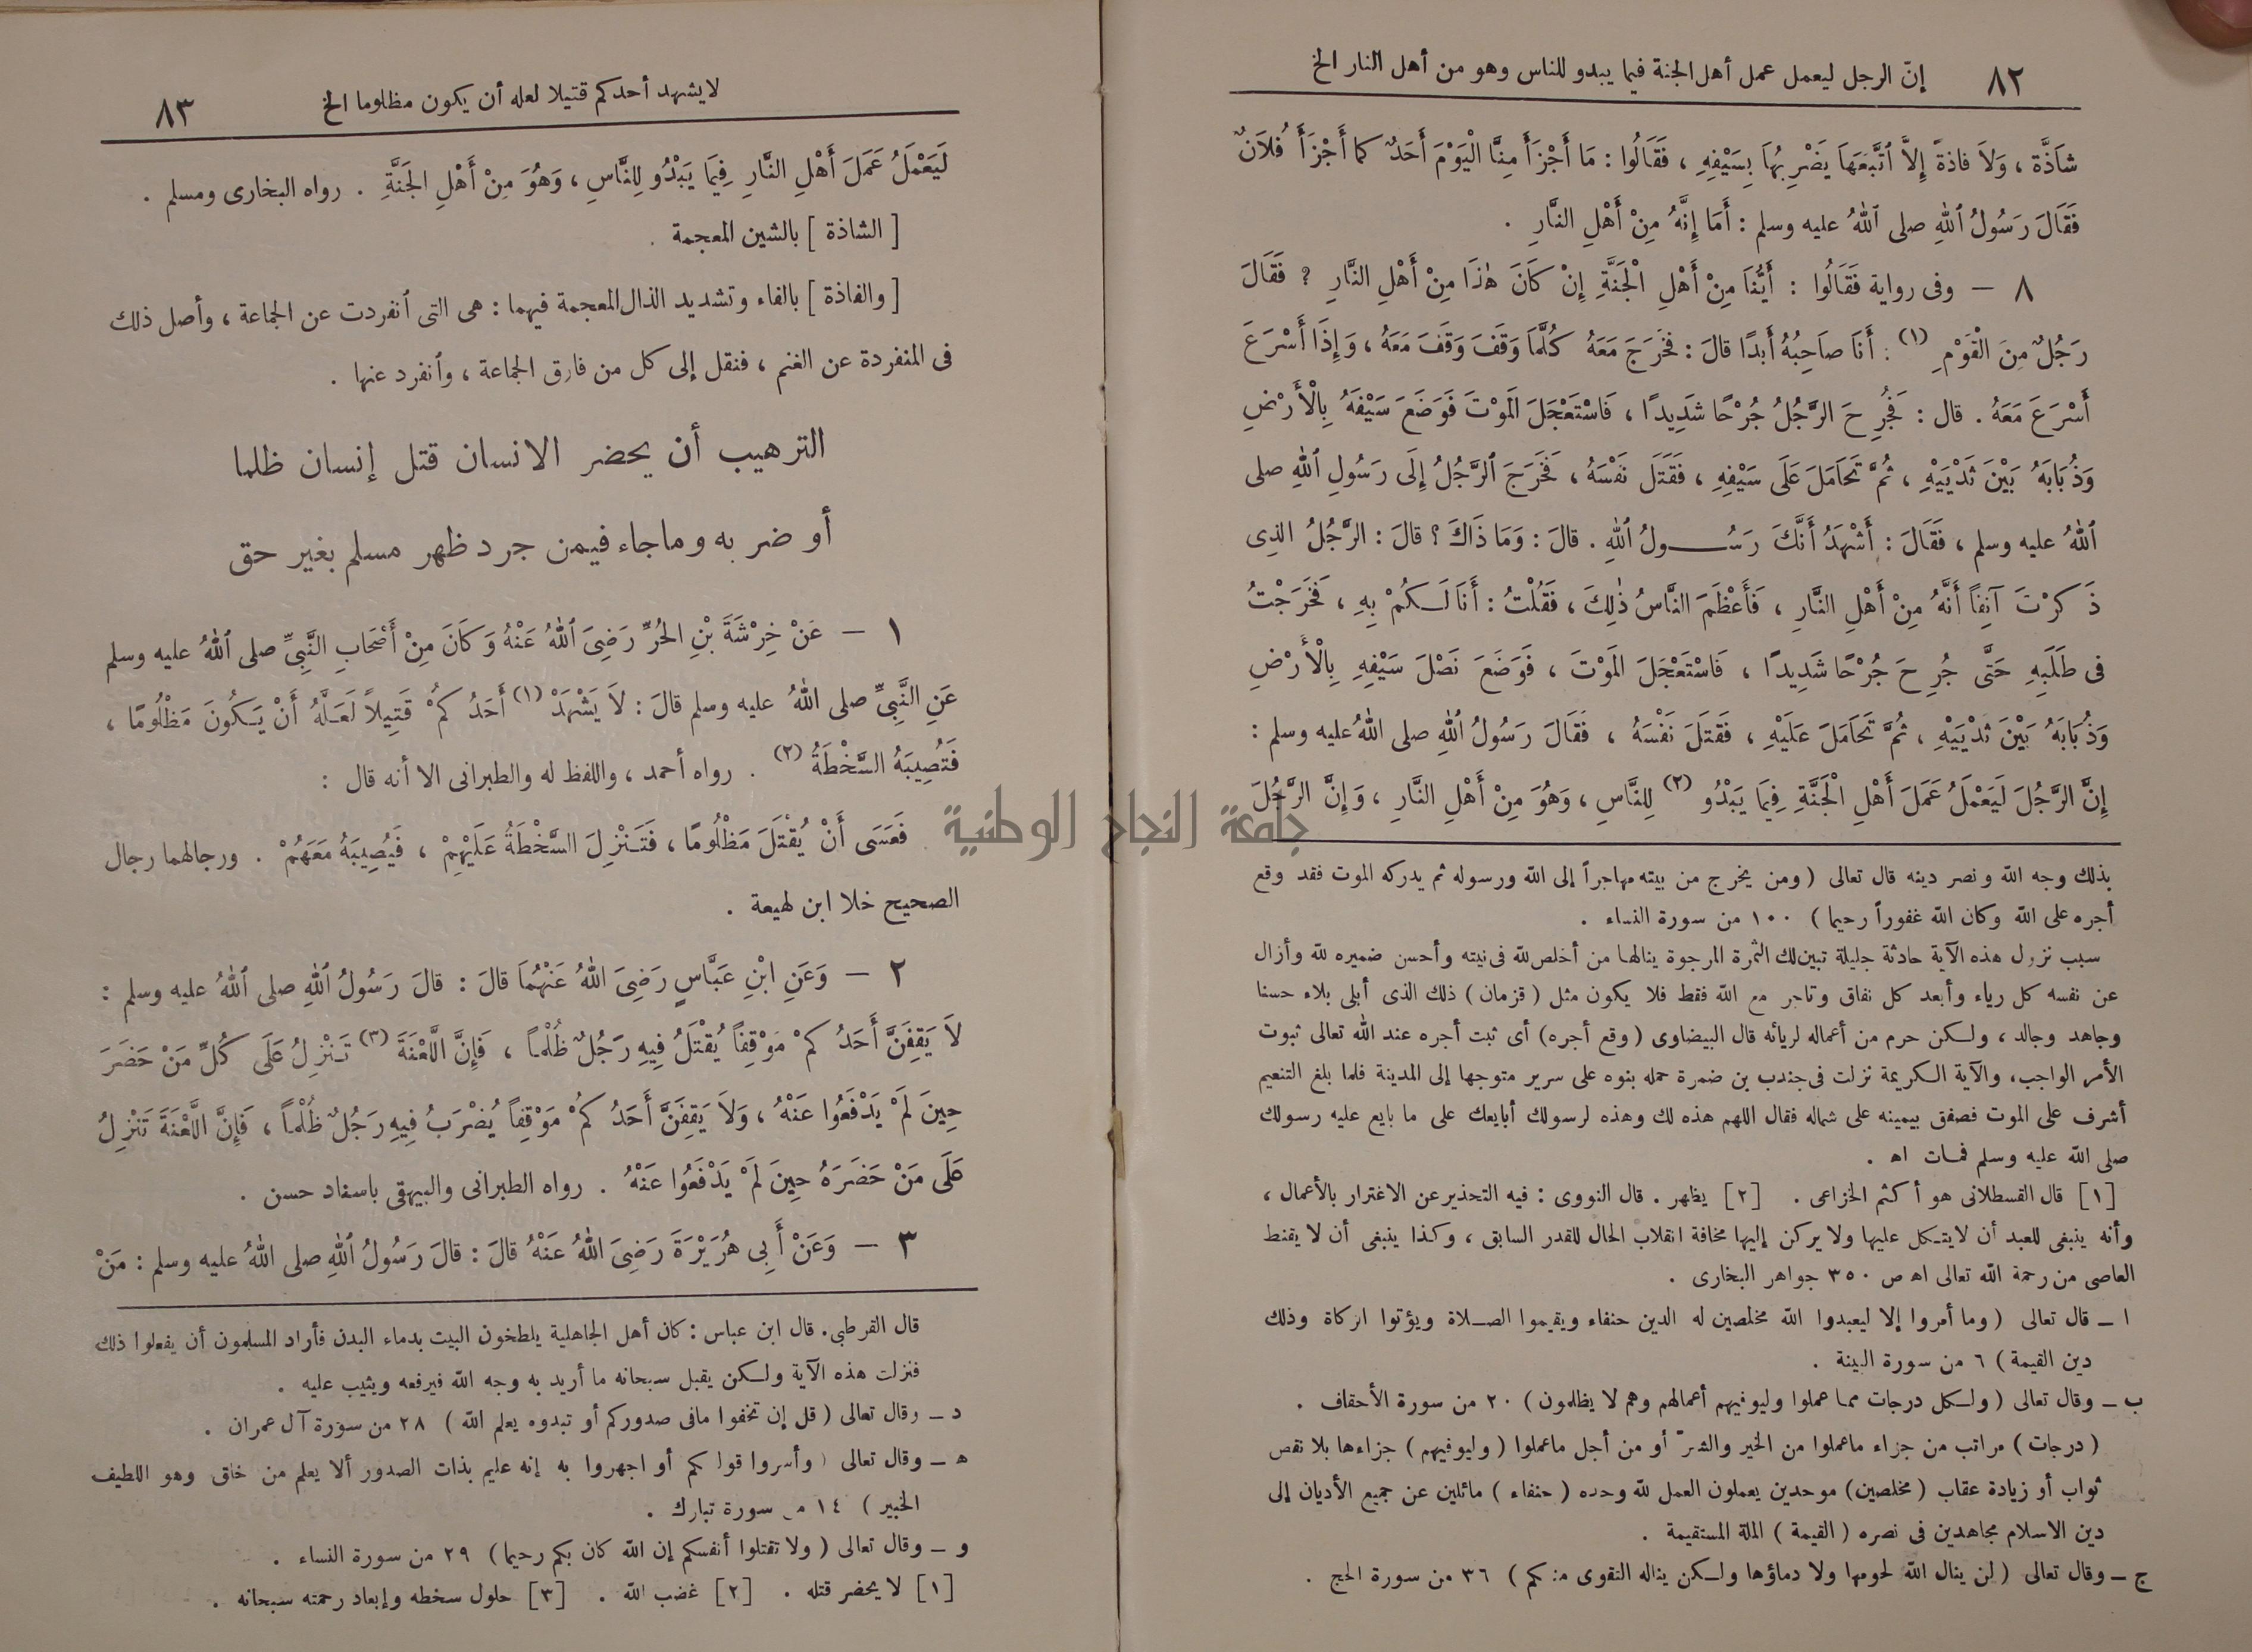 ٨٢ إنّ الرجل ليعمل عمل أهل الجنة فيما يبدو للناس وهو من أهل النار الخ
شَاذَّة ، وَلاَ فاذةً إِلاَّ ٱتَّبَعَهاَ يَضْرِبُهاَ بِسَيْفِهِ ، فَقَالُوا : مَا أَجْزَأَ مِنَّا الْيَوْمَ أَحَدٌ كما أَجْزَأَ فُلاَنٌ
فَقَالَ رَسُولُ ٱللهِ صلى ٱللهُ عليه وسلم : أَمَا إِنَّهُ مِنْ أَهْلِ النَّارِ .
٨ – وفى رواية فَقَالُوا : أَيُّنَا مِنْ أَهْلِ الْجَنَّةِ إِنْ كَانَ هٰذَا مِنْ أَهْلِ النَّارِ ؟ فَقَالَ
رَجُلٌ مِنَ الْقَوْمِ (١) : أَنَا صاَحِبُهُ أَبدًا قالَ : فَخَرَجَ مَعَهُ كُلَّمَا وَقَفَ وَقَفَ مَعَهُ ، وَإِذَا أَسْرَعَ
أَسْرَعَ مَعَهُ . قال : فَجُرِحَ الرَّجُلُ جُرْحًا شَدِيدًا ، فَاسْتَعْجَلَ المَوْتَ فَوَضَعَ سَيْفَهُ بِالْأَرْضِ
وَذُبَابَهُ بَيْنَ ثَدْيَيْهِ ، ثُمَّ تَحَامَلَ عَلَى سَيْفِهِ ، فَقَتَلَ نَفْسَهُ ، فَخَرَجَ ٱلرَّجُلُ إِلَى رَسُولِ ٱللهِ صلى
ٱللهُ عليه وسلم ، فَقَالَ : أَشْهَدُ أَنَّكَ رَسُولُ ٱللهِ . قالَ : وَمَا ذَاكَ ؟ قالَ : الرَّجُلُ الذِى
ذَكرْتَ آنِفاً أَنَّهُ مِنْ أَهْلِ النَّارِ ، فَأَعْظَمَ النَّاسُ ذٰلِكَ ، فَقُلْتُ : أَنَا لَكُمْ بِهِ ، فَخَرَجْتُ
فى طَلَبِهِ حَتَّى جُرِحَ جُرْحًا شَدِيدًا ، فَاسْتَعْجَلَ المَوْتَ ، فَوَضَعَ نَصْلَ سَيْفِهِ بِالْأَرْضِ
وَذُبَابَهُ بَيْنَ ثَدْيَيْهِ ، ثُمَّ تَحَامَلَ عَلَيْهِ ، فَقَتَلَ نَفْسَهُ ، فَقَالَ رَسُولُ ٱللهِ صلى اللهُ عليه وسلم :
إِنَّ الرَّجُلَ لَيَعْمَلُ عَمَلَ أَهْلِ الْجَنَّةِ فِيمَا يَبْدُو (٢) لِلنَّاسِ ، وَهُوَ مِنْ أَهْلِ النَّارِ ، وَإِنَّ الرَّجُلَ
بذلك وجه الله ونصر دينه قال تعالى ( ومن يخرج من بيته مهاجراً إلى الله ورسوله ثم يدركه الموت فقد وقع
أجره على الله وكان الله غفوراً رحيما ) ١٠٠ من سورة النساء .
سبب نزول هذه الآية حادثة جليلة تبين لك الثمرة المرجوة ينالها من أخلص لله فى نيته وأحسن ضميره لله وأزال
عن نفسه كل رياء وأبعد كل نفاق وتاجر مع الله فقط فلا يكون مثل ( قزمان ) ذلك الذى أبلى بلاء حسنا
وجاهد وجالد ، ولكن حرم من أعماله لريائه قال البيضاوى ( وقع أجره ) أى ثبت أجره عند الله تعالى ثبوت
الأمر الواجب ، والآية الكريمة نزلت فى جندب بن ضمرة حمله بنوه على سرير متوجها إلى المدينة فلما بلغ التنعيم
أشرف على الموت فصفق بيمينه على شماله فقال اللهم هذه لك وهذه لرسولك أبايعك على ما بايع عليه رسولك
صلى الله عليه وسلم فمات اه .
[١] قال القسطلانى هو أكثم الخزاعى . [٢] يظهر . قال النووى : فيه التحذير عن الاغترار بالأعمال ،
وأنه ينبغى للعبد أن لايتكل عليها ولا يركن إليها مخافة انقلاب الحال للقدر السابق ، وكذا ينبغى أن لا يقنط
العاصى من رحمة الله تعالى اه ص ٣٥٠ جواهر البخارى .
ا – قال تعالى ( وما أمروا إلا ليعبدوا الله مخلصين له الدين حنفاء ويقيموا الصلاة ويؤتوا الزكاة وذلك
دين القيمة ) ٦ من سورة البينة .
ب – وقال تعالى ( ولكل درجات مما عملوا وليوفيهم أعمالهم وهم لا يظلمون ) ٢٠ من سورة الأحقاف .
( درجات ) مراتب من جزاء ماعملوا من الخير والشرّ أو من أجل ماعملوا ( وليوفيهم ) جزاءها بلا نقص
ثواب أو زيادة عقاب ( مخلصين ) موحدين يعملون العمل لله وحده ( حنفاء ) مائلين عن جميع الأديان إلى
دين الاسلام مجاهدين فى نصره ( القيمة ) الملة المستقيمة .
ج – وقال تعالى ( لن ينال الله لحومها ولا دماؤها ولكن يناله التقوى منكم ) ٣٦ من سورة الحج .
لايشهد أحدكم قتيلا لعله أن يكون مظلوما الخ ٨٣
لَيَعْمَلُ عَمَلَ أَهْلِ النَّارِ فِيمَا يَبْدُو لِلنَّاسِ ، وَهُوَ مِنْ أَهْلِ الجَنَّةِ . رواه البخارى ومسلم .
[ الشاذة ] بالشين المعجمة .
[ والفاذة ] بالفاء وتشديد الذال المعجمة فيهما : هى التى ٱنفردت عن الجماعة ، وأصل ذلك
فى المنفردة عن الغنم ، فنقل إلى كل من فارق الجماعة ، وٱنفرد عنها .
الترهيب أن يحضر الانسان قتل إنسان ظلما
أو ضربه وماجاء فيمن جرد ظهر مسلم بغير حق
١ – عَنْ خِرْشَةَ بْنِ الحُرِّ رَضِىَ ٱللهُ عَنْهُ وَكَانَ مِنْ أَصْحَابِ النَّبِىِّ صلى ٱللهُ عليه وسلم
عَنِ النَّبِىِّ صلى اللهُ عليه وسلم قالَ : لاَ يَشْهَدْ (١) أَحَدُكمُ ْ قَتِيلاً لَعَلَّهُ أَنْ يَكُونَ مَظْلُومًا ،
فَتُصِيبَهُ السَّخْطَةُ (٢) . رواه أحمد ، واللفظ له والطبرانى الا أنه قال :
فَعَسَى أَنْ يُقْتَلَ مَظْلُومًا ، فَتَنْزِلَ السَّخْطَةُ عَلَيْهِمْ ، فَيُصِيبَهُ مَعَهُمْ . ورجالهما رجال
الصحيح خلا ابن لهيعة .
٢ – وَعَنِ ابْنِ عَبَّاسٍ رَضِىَ اللهُ عَنْهُمَا قالَ : قالَ رَسُولُ ٱللهِ صلى ٱللهُ عليه وسلم :
لاَ يَقِفَنَّ أَحَدُكمْ مَوْقِفاً يُقْتَلُ فِيهِ رَجُلٌ ظُلْماً ، فَإِنَّ اللَّعْنَةَ (٣) تَنْزِلُ عَلَى كُلِّ مَنْ حَضَرَ
حِينَ لَمْ يَدْفَعُوا عَنْهُ ، وَلاَ يَقِفَنَّ أَحَدُكمُ ْ مَوْقِفاً يُضْرَبُ فِيهِ رَجُلٌ ظُلْماً ، فَإِنَّ اللَّعْنَةَ تَنْزِلُ
عَلَى مَنْ حَضَرَهُ حِينَ لَمْ يَدْفَعُوا عَنْهُ . رواه الطبرانى والبيهقى باسناد حسن .
٣ – وَعَنْ أَبِى هُرَيْرَةَ رَضِىَ اللهُ عَنْهُ قالَ : قالَ رَسُولُ ٱللهِ صلى اللهُ عليه وسلم : مَنْ
قال القرطبى . قال ابن عباس : كان أهل الجاهلية يلطخون البيت بدماء البدن فأراد المسلمون أن يفعلوا ذلك
فنزلت هذه الآية ولكن يقبل سبحانه ما أريد به وجه الله فيرفعه ويثيب عليه .
د – وقال تعالى ( قل إن تخفوا مافى صدوركم أو تبدوه يعلم الله ) ٢٨ من سورة آل عمران .
ه – وقال تعالى ( وأسروا قولكم أو اجهروا به إنه عليم بذات الصدور ألا يعلم من خلق وهو اللطيف
الخبير ) ١٤ من سورة تبارك .
و – وقال تعالى ( ولا تقتلوا أنفسكم إن الله كان بكم رحيما ) ٢٩ من سورة النساء .
[١] لا يحضر قتله . [٢] غضب الله . [٣] حلول سخطه وإبعاد رحمته سبحانه .
جامعة النجاح الوطنية